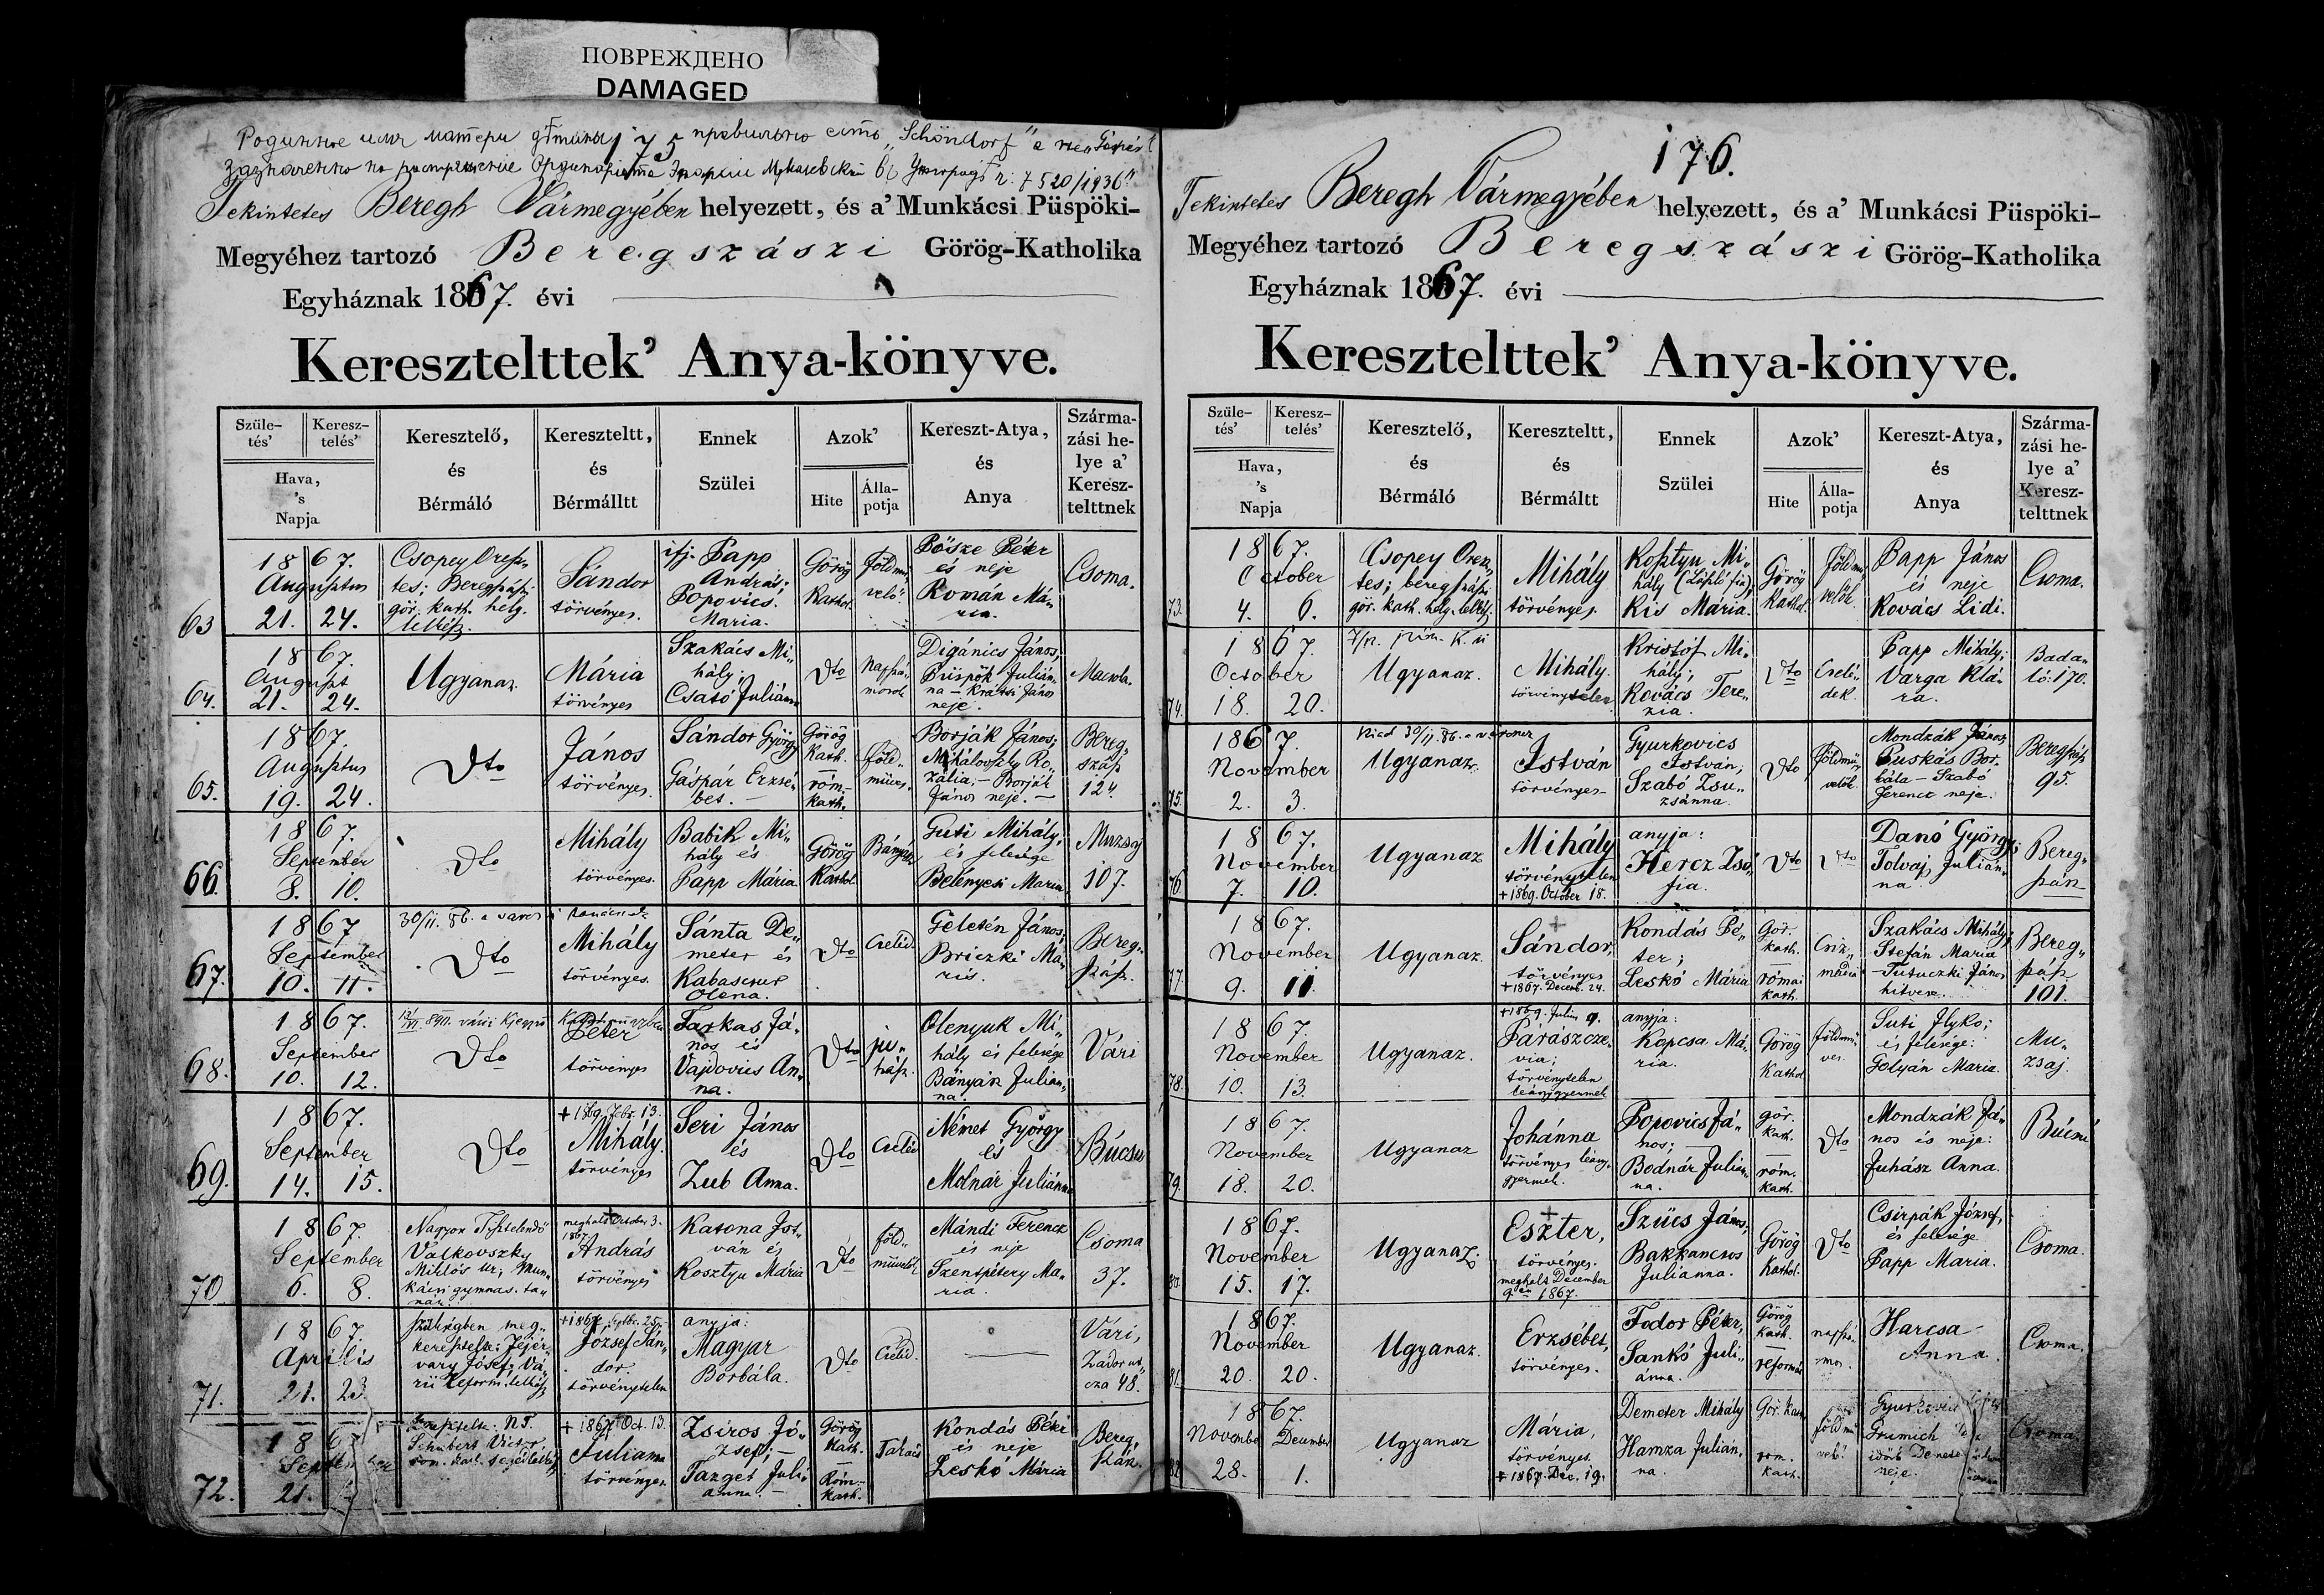 ПОВРЕЖДЕНО
DAMAGED
175
"Schöndorf"
7520/1936
Tekintetes Beregh Vármegyében helyezett, és a' Munkácsi Püspöki-
Megyéhez tartozó Beregszászi Görög-Katholika
Egyháznak 1867. évi
Keresztelttek' Anya-könyve.
Születés' Keresztelés' Hava, 's Napja
Keresztelő, és Bérmáló
Kereszteltt, és Bérmálltt
Ennek Szülei
Azok' Hite Állapotja
Kereszt-Atya, és Anya
Származási helye a' Keresztelttnek
63
1867. Augusztus 21. 24.
Csopey Oresztes; Beregszászi gör. kath. help. lelkész.
Sándor törvényes.
ifj. Papp András; Popovics Maria.
Görög Kathol.
Földművelő.
Pősze Péter és neje Román Mária.
Csoma.
64.
1867. August 21. 24.
Ugyanaz.
Mária törvényes
Szakács Mihály; Csató Julianna
Dto
Digánics János; Püspök Julianna – Krajsi János neje.
Macsola.
65.
1867. Augusztus 19. 24.
Dto
János törvényes.
Sándor György Gáspár Erzsébet. –
Görög Kath. – róm. kath.
földműves.
Borják János; Mihálovszky Rozália, – Borják János neje. –
Beregszász 124.
66.
1867. September 8. 10.
Dto
Mihály törvényes.
Babik Mihály és Papp Mária.
Görög Kathol.
Bányász
Guti Mihály, és felesége Belényesi Maria
Muzsaj 107.
67.
1867 September 10. 11.
30/II. 86.
Dto
Mihály törvényes.
Sánta Demeter és Kabascsur Olena.
Dto
Cseléd.
Geletén János; Briczki Maris.
Beregszász.
68.
1867. September 10. 12.
Dto
Péter törvényes
Farkas János és Vajdovics Anna.
Dto
juhász.
Olenyuk Mihály és felesége Bányák Julianna.
Vári
69.
1867. September 14. 15.
Dto
+ 1869. Febr. 13.
Mihály. törvényes
Seri János és Zub Anna.
Dto
Cseléd
Német György és Molnár Julianna
Búcsu
70.
1867. September 6. 8.
Nagyon Tisztelendő Valkovszky Miklós ur; Munkácsi gymnas. tanár.
meghalt October 3. 1867.
András törvényes
Katona István és Kosztyu Mária
Dto
földművelők
Mándi Ferencz és neje Szentpétery Maria.
Csoma 37.
71.
1867. Április 21. 23
szükségben megkeresztelte: Fejérváry József; Vári reform. lelkész
+ 1867. Septbr. 25.
József Sándor. törvénytelen
anyja: Magyar Borbála.
Dto
Cseléd.
Vári, Zador utcza 48.
72.
1867 September 21.
Schubert Victor róm. kath. segédlelkész
+ 1867. Oct. 13.
Julianna törvényes.
Zsiros József; – Tazger Julianna. –
Görög Kath. – Róm. Kath.
Takács
Kondás Péter és neje Leskó Mária
Beregszász.
176.
Tekintetes Beregh Vármegyében helyezett, és a' Munkácsi Püspöki-
Megyéhez tartozó Beregszászi Görög-Katholika
Egyháznak 1867. évi
Keresztelttek' Anya-könyve.
Születés' Keresztelés' Hava, 's Napja
Keresztelő, és Bérmáló
Kereszteltt, és Bérmáltt
Ennek Szülei
Azok' Hite Állapotja
Kereszt-Atya, és Anya
Származási helye a' Keresztelttnek
73.
1867. October 4. 6.
Csopey Oresztes; beregszászi gör. kath. help. lelkész.
Mihály törvényes.
Kosztyu Mihály (László fia); Kis Mária.
Görög Kathol.
Földművelők.
Papp János és neje Kovács Lidi.
Csoma.
74.
1867. October 18. 20.
Ugyanaz.
Mihály. törvénytelen
Kristóf Mihály; Kovács Terezia.
Dto
Cselédek.
Papp Mihály; Varga Klára.
Badaló. 170.
75.
1867. November 2. 3.
Kiad 30/II. 86.
Ugyanaz.
István törvényes –
Gyurkovics István; Szabó Zsuzsánna.
Dto
földművelők.
Mondzák János, Puskás Borbála – Szabó Ferencz neje.
Beregszász 95.
76.
1867. November 7. 10.
Ugyanaz
Mihály törvénytelen + 1869. October 18.
anyja: Hercz Zsófia.
Dto
Dto
Danó György; Tolvaj Julianna.
Beregszász
77.
1867. November 9. 11.
Ugyanaz.
Sándor, törvényes + 1867. Decemb. 24.
Kondás Péter; Leskó Mária
Gör. kath. – római kath.
Csizmadia
Szakács Mihály; Stefán Maria – Tutuczki János hitvese.
Beregszász 101.
78.
1867. November 10. 13.
Ugyanaz.
+ 1869. Julius 9.
Parászczevia; törvénytelen leánygyermek
anyja: Kopcsa Mária.
Görög Kathol
földműves.
Suti Ilyko; és felesége: Golyán Maria.
Muzsaj.
79.
1867. November 18. 20.
Ugyanaz
Johánna törvényes leánygyermek.
Popovics János; – Bodnár Julianna.
gör. kath. – róm. kath.
Dto
Mondzák János és neje: Juhász Anna.
Búcsú
80.
1867. November 15. 17.
Ugyanaz.
Eszter, törvényes. meghalt December 9én 1867.
Szücs János, Bakkancsos Julianna.
Görög Kathol.
Dto
Csirpák József, és felesége Papp Maria.
Csoma.
81.
1867. November 20. 20.
Ugyanaz.
Erzsébet, törvényes.
Fodor Péter, Sankó Julianna.
Görög Kath. – reformat
Harcsa Anna.
Csoma.
82.
1867 November December 28. 1.
Ugyanaz
Mária, törvényes. + 1867. Dec. 19.
Demeter Mihály Hamza Julianna.
Gör. Kath róm. kath.
földművelő.
neje.
Csoma.